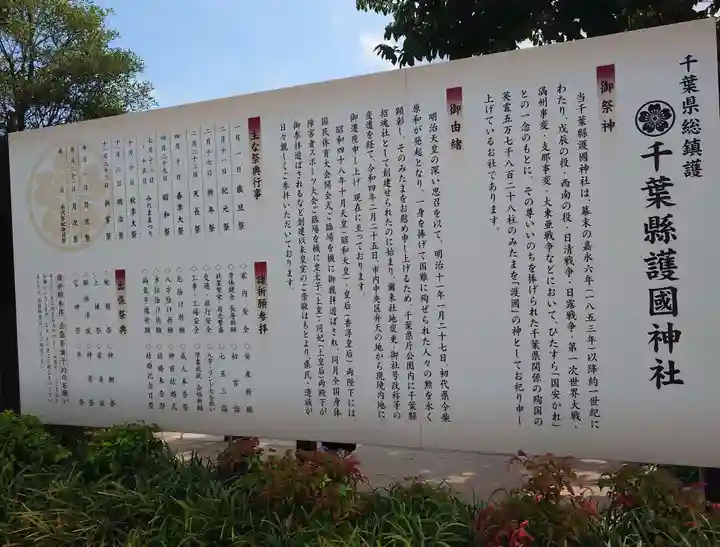 千葉県総鎮護
千葉縣護國神社
御祭神
当千葉縣護國神社は、幕末の嘉永六年(一八五三年)以降約一世紀に
わたり、戊辰の役・西南の役・日清戦争・日露戦争・第一次世界大戦・
満州事変・支那事変・大東亜戦争などにおいて、ひたすら「国安かれ」
との一念のもとに、その尊いいのちを捧げられた千葉県関係の殉国の
英霊五万七千八百二十八柱のみたまを「護國」の神としてお祀り申し
上げているお社であります。
御由緒
明治天皇の深い思召を以て、明治十一年一月二十七日、初代県令柴
原和が発起となり、一身を捧げて国難に殉ぜられた人々の勲を永く
顕彰し、そのみたまをお慰め申し上げるため、千葉県庁公園内に千葉縣
招魂社として創建せられたのに始まり、爾来社地変更・御社号改称等の
変遷を経て、令和四年二月二十五日、市内中央区弁天の地から現境内地に
御遷座申し上げ、現在に至っております。
昭和四十八年十月天皇(昭和天皇)・皇后(香淳皇后)両陛下には、
国民体育大会開会式ご臨場を機に御親拝遊ばされ、同月全国身体
障害者スポーツ大会ご臨場を機に皇太子(上皇)・同妃(上皇后)両殿下が
御参拝遊ばされるなど創建以来皇室のご崇敬はもとより、県民・遺族が
日々親しくご参拝いただいております。
主な祭典行事
一月一日 歳旦祭
二月十一日 紀元祭
二月十七日 祈年祭
二月二十三日 天長祭
四月十日 春季大祭
四月二十九日 昭和祭
みたままつり
十月十日 秋季大祭
十一月三日 明治祭
諸祈願参拝
◇家内安全
◇安産祈願
◇初宮詣
◇七五三詣
◇交通・旅行安全
◇工事・工場安全
◇成人奉告祭
◇神前結婚式
◇結婚奉告祭
◇結婚記念日祭
出張祭典
◇地鎮祭
◇上棟祭